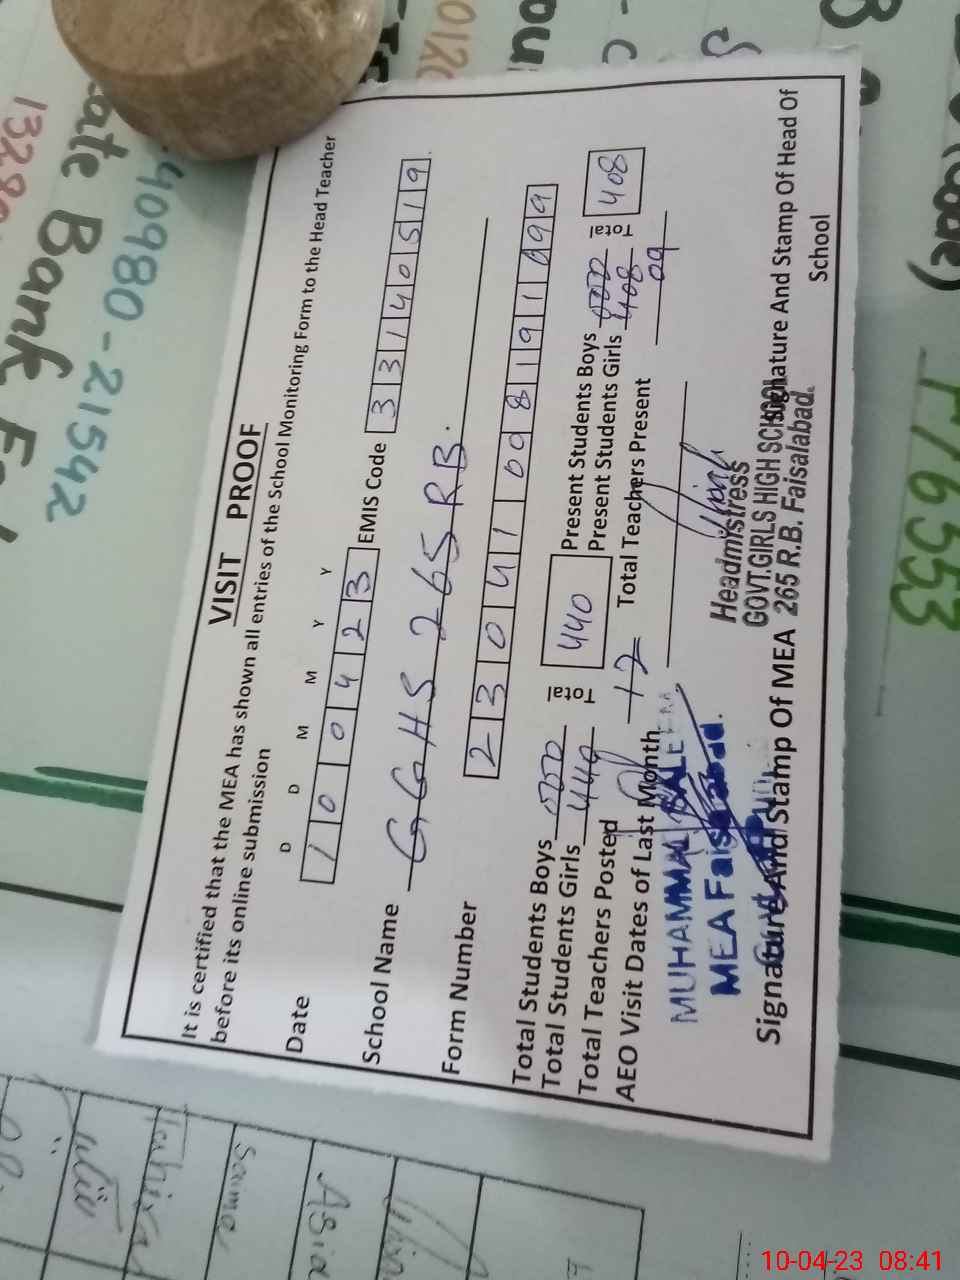 VISIT PROOF
It is certified that the MEA has shown all entries of the School Monitoring Form to the Head Teacher
before its online submission
D D M M Y Y
Date 100423 EMIS Code 33140519
School Name GGHS 265 RB.
Form Number 230410098191099
Total Students Boys 000 Total 440 Present Students Boys 000 Total 408
Total Students Girls 440 Present Students Girls 408
Total Teachers Posted 12 Total Teachers Present 09
AEO Visit Dates of Last Month
MUHAMMAD SALEEM
MEA Faisalabad.
Headmistress
GOVT.GIRLS HIGH SCHOOL
265 R.B. Faisalabad.
Signature And Stamp Of MEA Signature And Stamp Of Head Of
School
40980-21542
Bank
17/6553
Saima
Asia
10-04-23 08:41